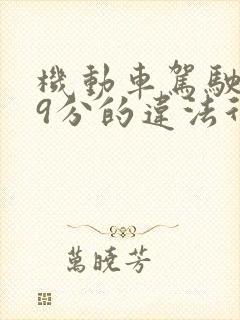 機動車駕駛
9分的違法行
萬曉芳